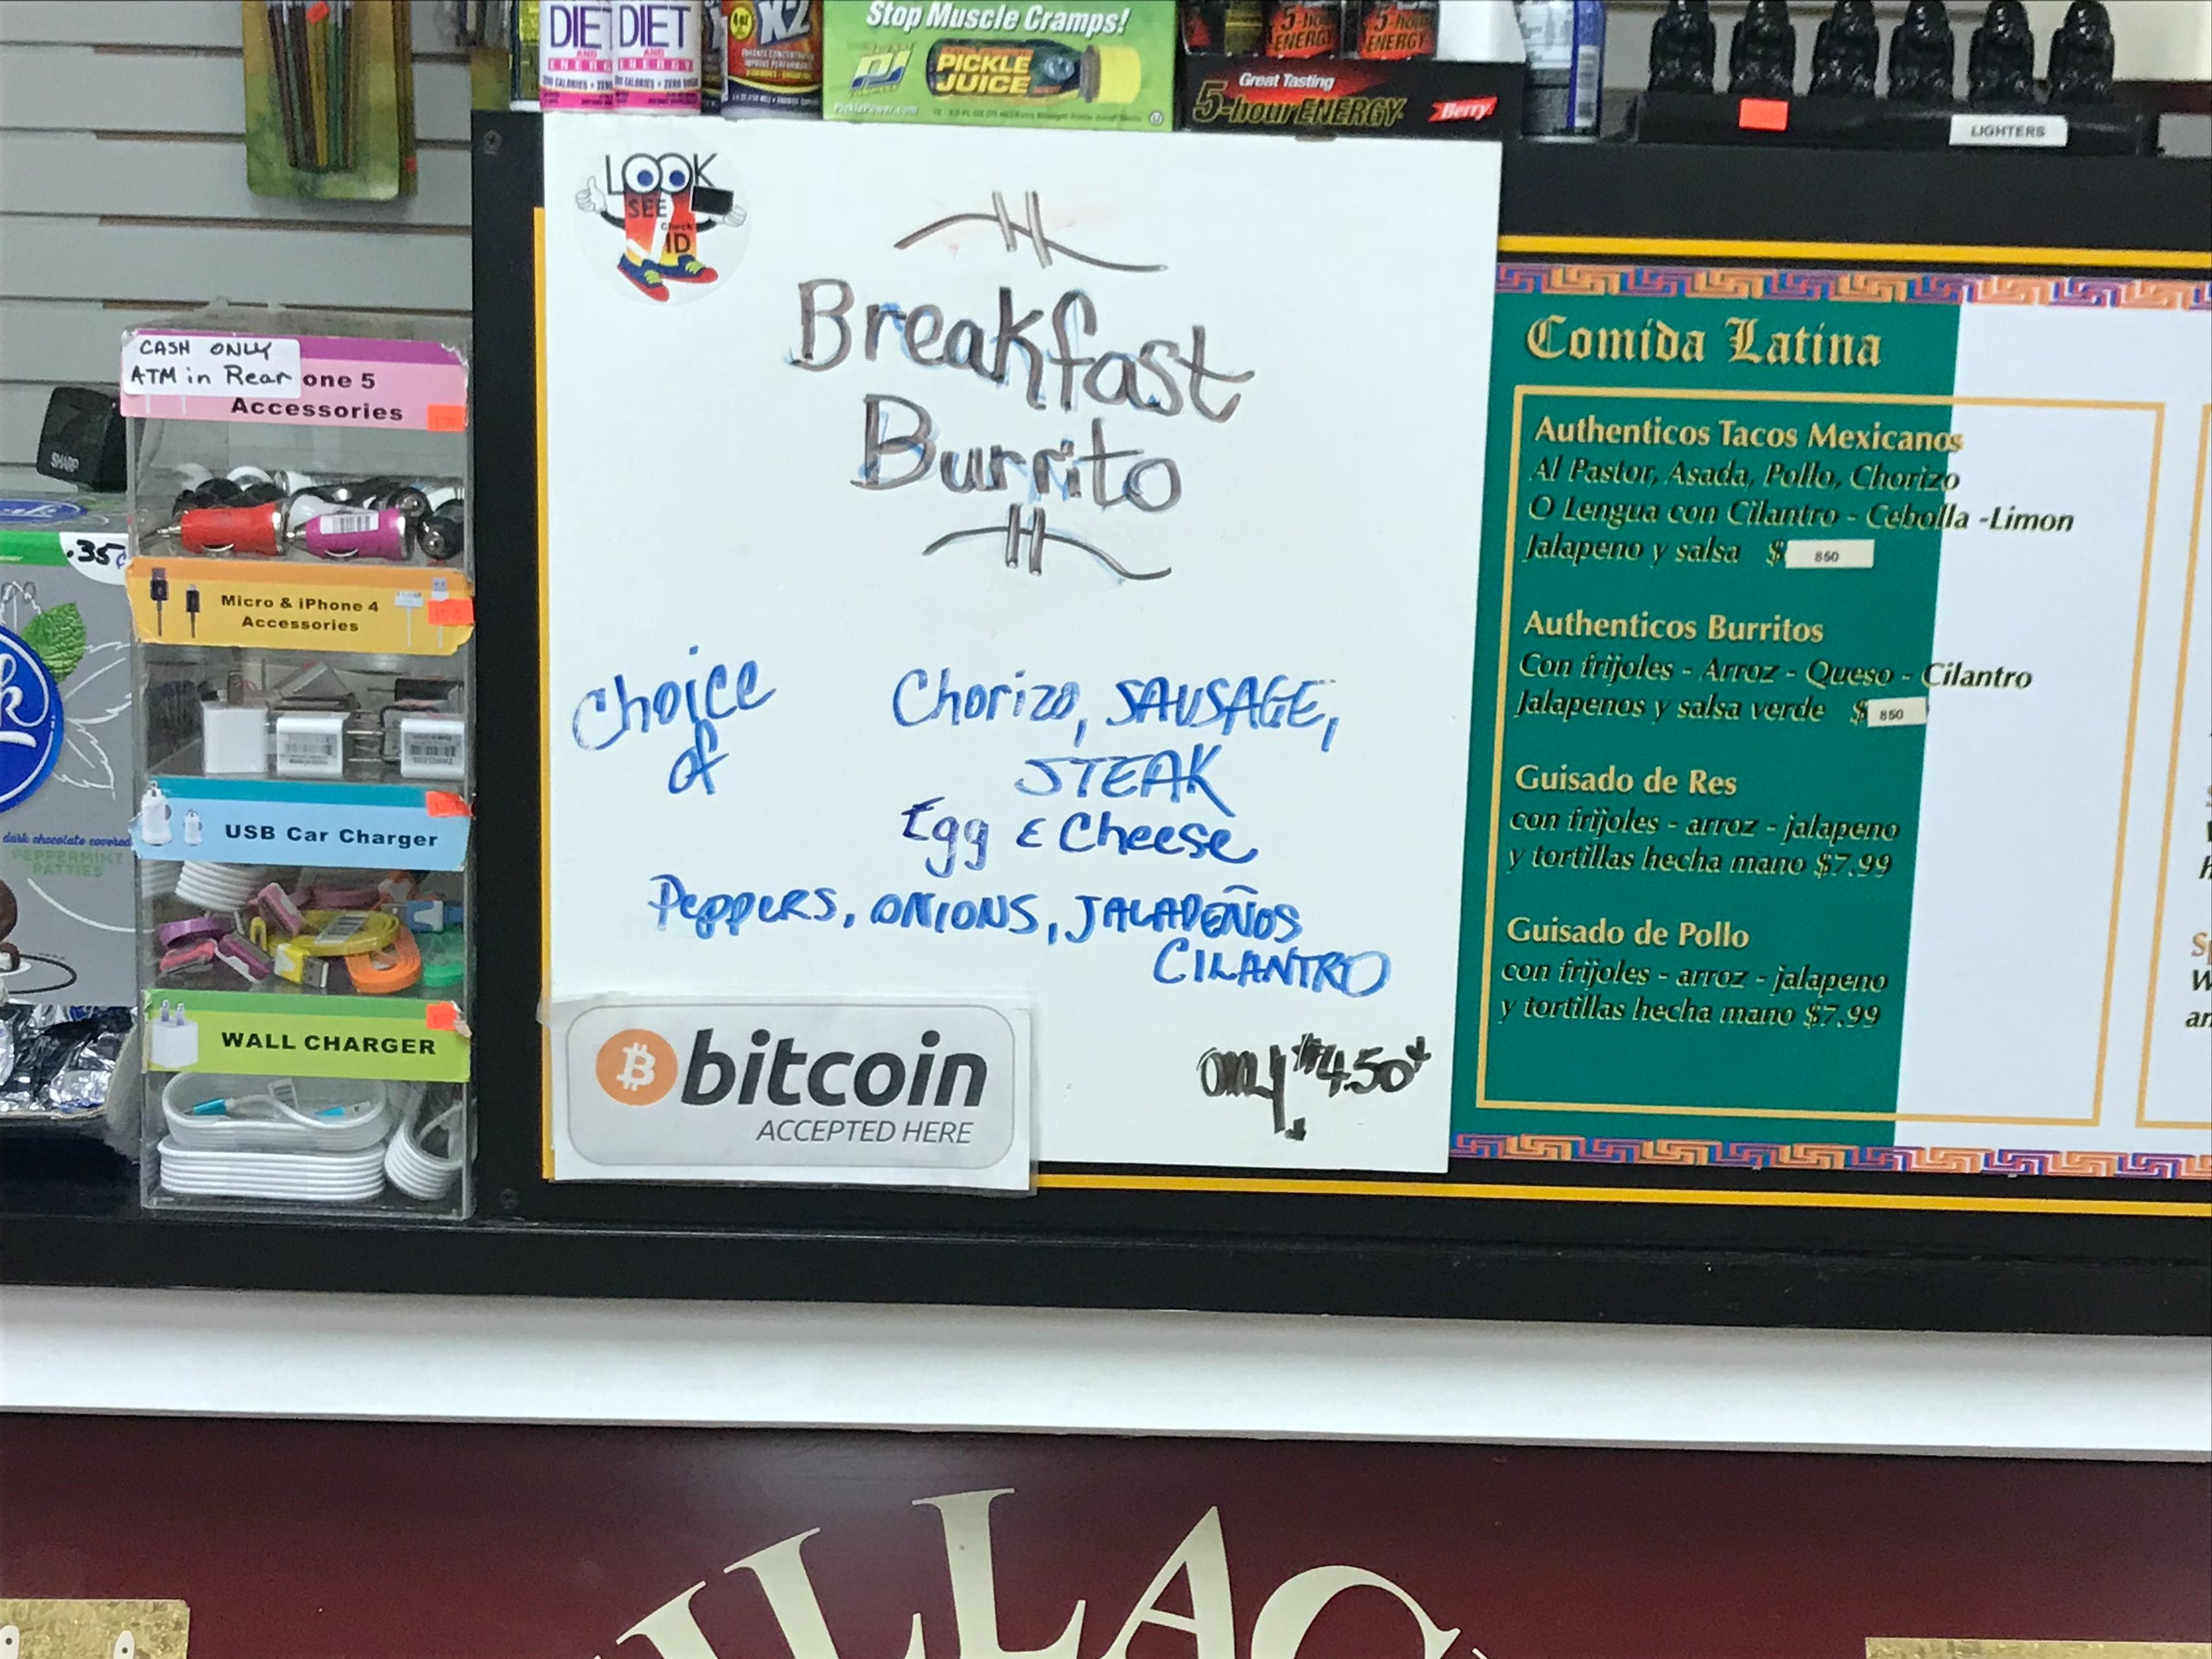 DIET
AND
ENERGY
DIET
AND
ENERGY
Stop Muscle Cramps!
PICKLE
JUICE
PicklePower.com
5-hour
ENERGY
5-hour
ENERGY
Great Tasting
5-hour ENERGY
Berry
LIGHTERS
LOOK
SEE
Check
ID
Breakfast
Burrito
Choice
of
Chorizo, SAUSAGE,
STEAK
Egg & Cheese
Peppers, ONIONS, JALAPEÑOS
CILANTRO
ONLY $4.50
bitcoin
ACCEPTED HERE
CASH ONLY
ATM in Rear
one 5
Accessories
SHARP
.35¢
Micro & iPhone 4
Accessories
USB Car Charger
WALL CHARGER
dark chocolate covered
PEPPERMINT
PATTIES
Comida Latina
Authenticos Tacos Mexicanos
Al Pastor, Asada, Pollo, Chorizo
O Lengua con Cilantro - Cebolla -Limon
Jalapeno y salsa $ 850
Authenticos Burritos
Con frijoles - Arroz - Queso - Cilantro
Jalapenos y salsa verde $ 850
Guisado de Res
con frijoles - arroz - jalapeno
y tortillas hecha mano $7.99
Guisado de Pollo
con frijoles - arroz - jalapeno
y tortillas hecha mano $7.99
ILLAG